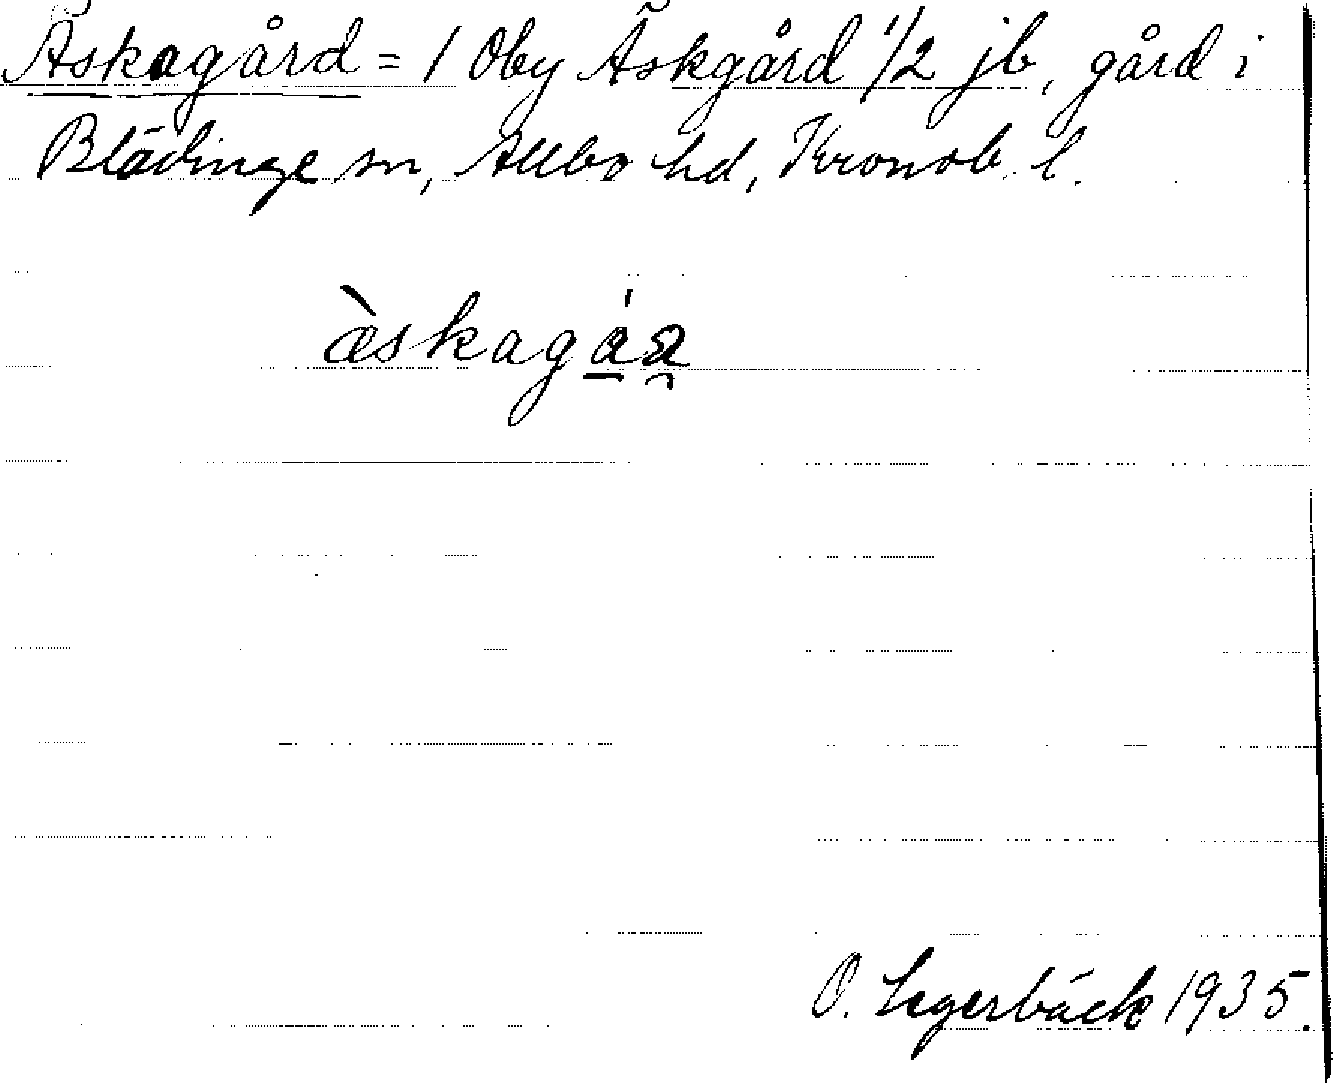 Äskagård = 1 Oby Äskgård 1/2 jb, gård i
Blädinge sn, Allbo hd, Kronob. l.
æ̀skagá
O. Legerbäck 1935.